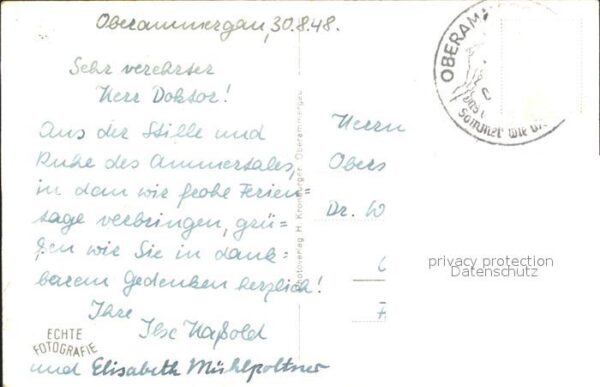 Oberammergau, 30.8.48.
Sehr verehrter
Herr Doktor!
Aus der Stille und
Ruhe des Ammertales,
in dem wir frohe Ferien=
tage verbringen, grü=
ßen wir Sie in dank=
barem Gedenken herzlich!
Ihre
Ilse Naßold
und Elisabeth Mühlpoltner
ECHTE
FOTOGRAFIE
Fotoverlag H. Kronburger, Oberammergau
Herrn
Obers
Dr. W
OBERAM
Sommer wie
privacy protection
Datenschutz